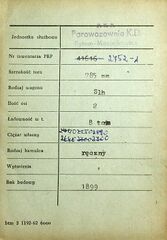 Jednostka służbowa
P.K.P.
Parowozownia K.D.
Nr inwentarza PKP 41616 2752-1
Szerokość toru 785 mm
Rodzaj wagonu Slh
Ilość osi 2
Ładowność w t. 8 ton
Ciężar własny
Rodzaj hamulca ręczny
Wyposażenie
Rok budowy 1899